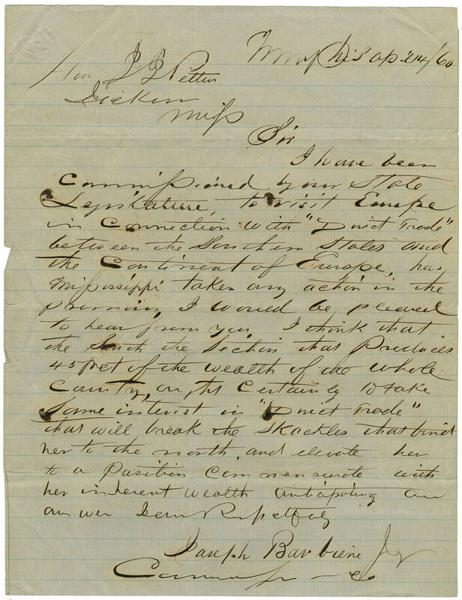 Memphis Ap 24/60
Hon J J Pettus
Jackson
Miss
Sir
I have been
Commissioned by our State
Legislature, to visit Europe
in Connection with "Direct Trade"
between the Southern States and
the Continent of Europe, has
Mississippi taken any action in the
premises, I would be pleased
to hear from you, I think that
the South the Section that produces
45 pct of the wealth of the whole
Country, ought Certainly to take
Some interest in "Direct Trade"
that will break the Shackles that bind
her to the north, and elevate her
to a position commensurate with
her inherent wealth anticipating an
answer I am Respectfully
Joseph Barbiere Jr